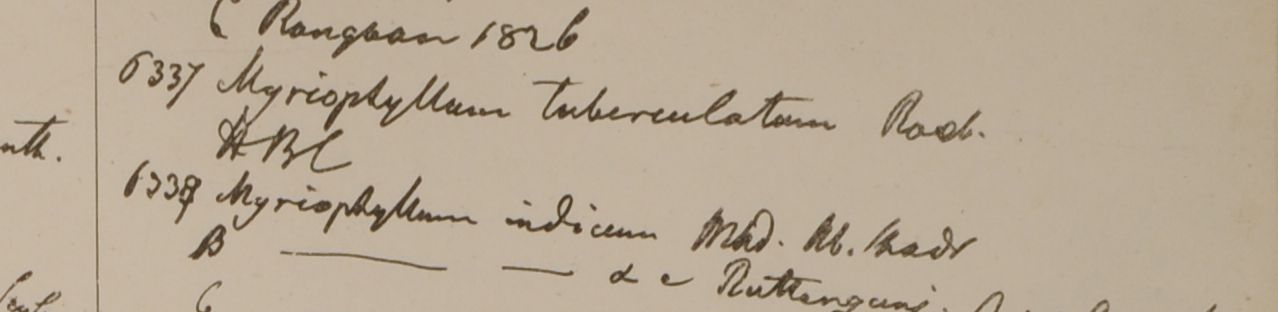 C Rangoon 1826
6337 Myriophyllum tuberculatum Roxb.
nth.
HBC
6338 Myriophyllum indicum Wild. Hb. Madr
B — — & c Ruttengunj.
C